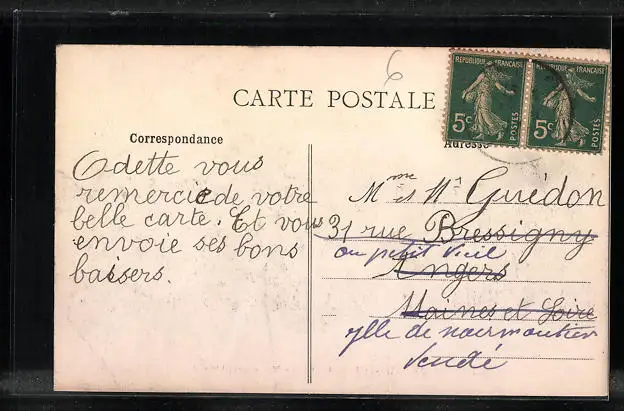 6
RÉPUBLIQUE FRANÇAISE RÉPUBLIQUE FRANÇAISE
5c POSTES 5c POSTES
CARTE POSTALE
Correspondance
Adresse
Odette vous
remercie de votre
belle carte. Et vous
envoie ses bons
baisers.
Mme et Mr Guédon
31 rue Bressigny
au petit Vieil
Angers
Maines et Loire
ylle de noirmoutier
Vendé